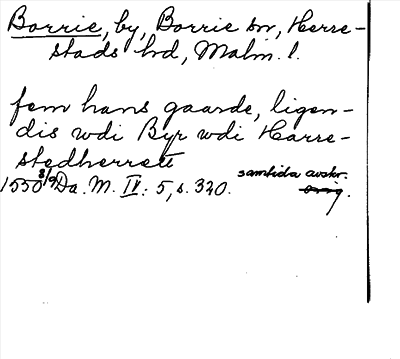 Borrie, by, Borrie sn, Herre-
stads hd, Malm. l.
fem hans gaarde, ligen-
dis wdi Byr wdi Harre-
stedherrett
1550 8/9 Da. M. IV: 5, s. 320. samtida avskr.
orig.